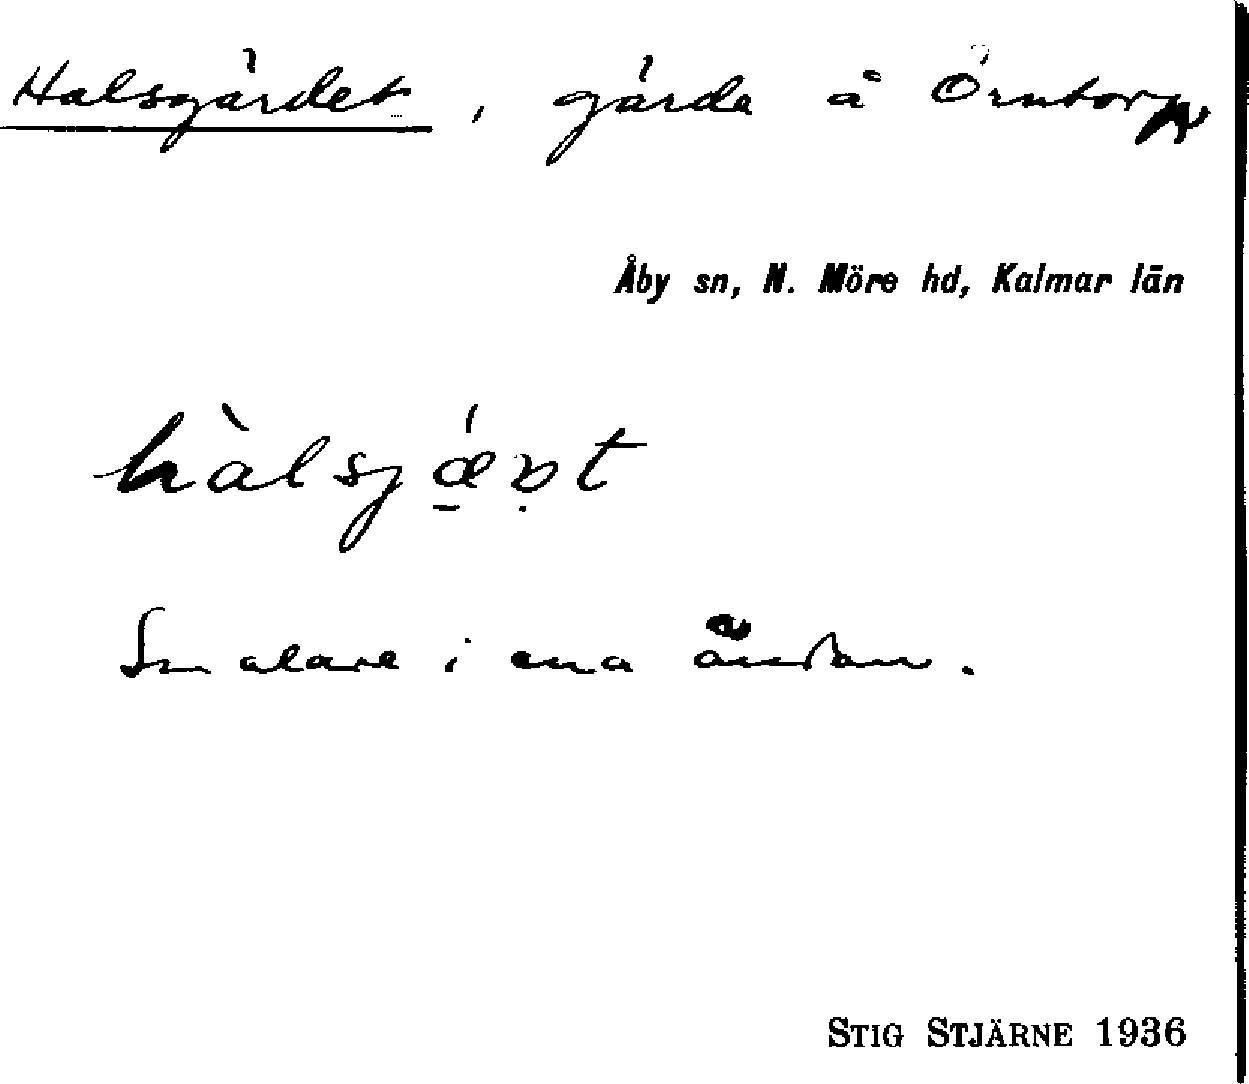 Halsgärdet, gärde å Örntorp
Åby sn, N. Möre hd, Kalmar län
hàlsjǽ̠ṿt
Smalare i ena ändan.
STIG STJÄRNE 1936